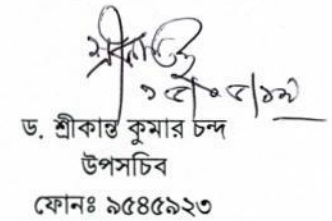 ড. শ্রীকান্ত কুমার চন্দ
উপসচিব
ফোনঃ ৯৫৪৫৯২৩